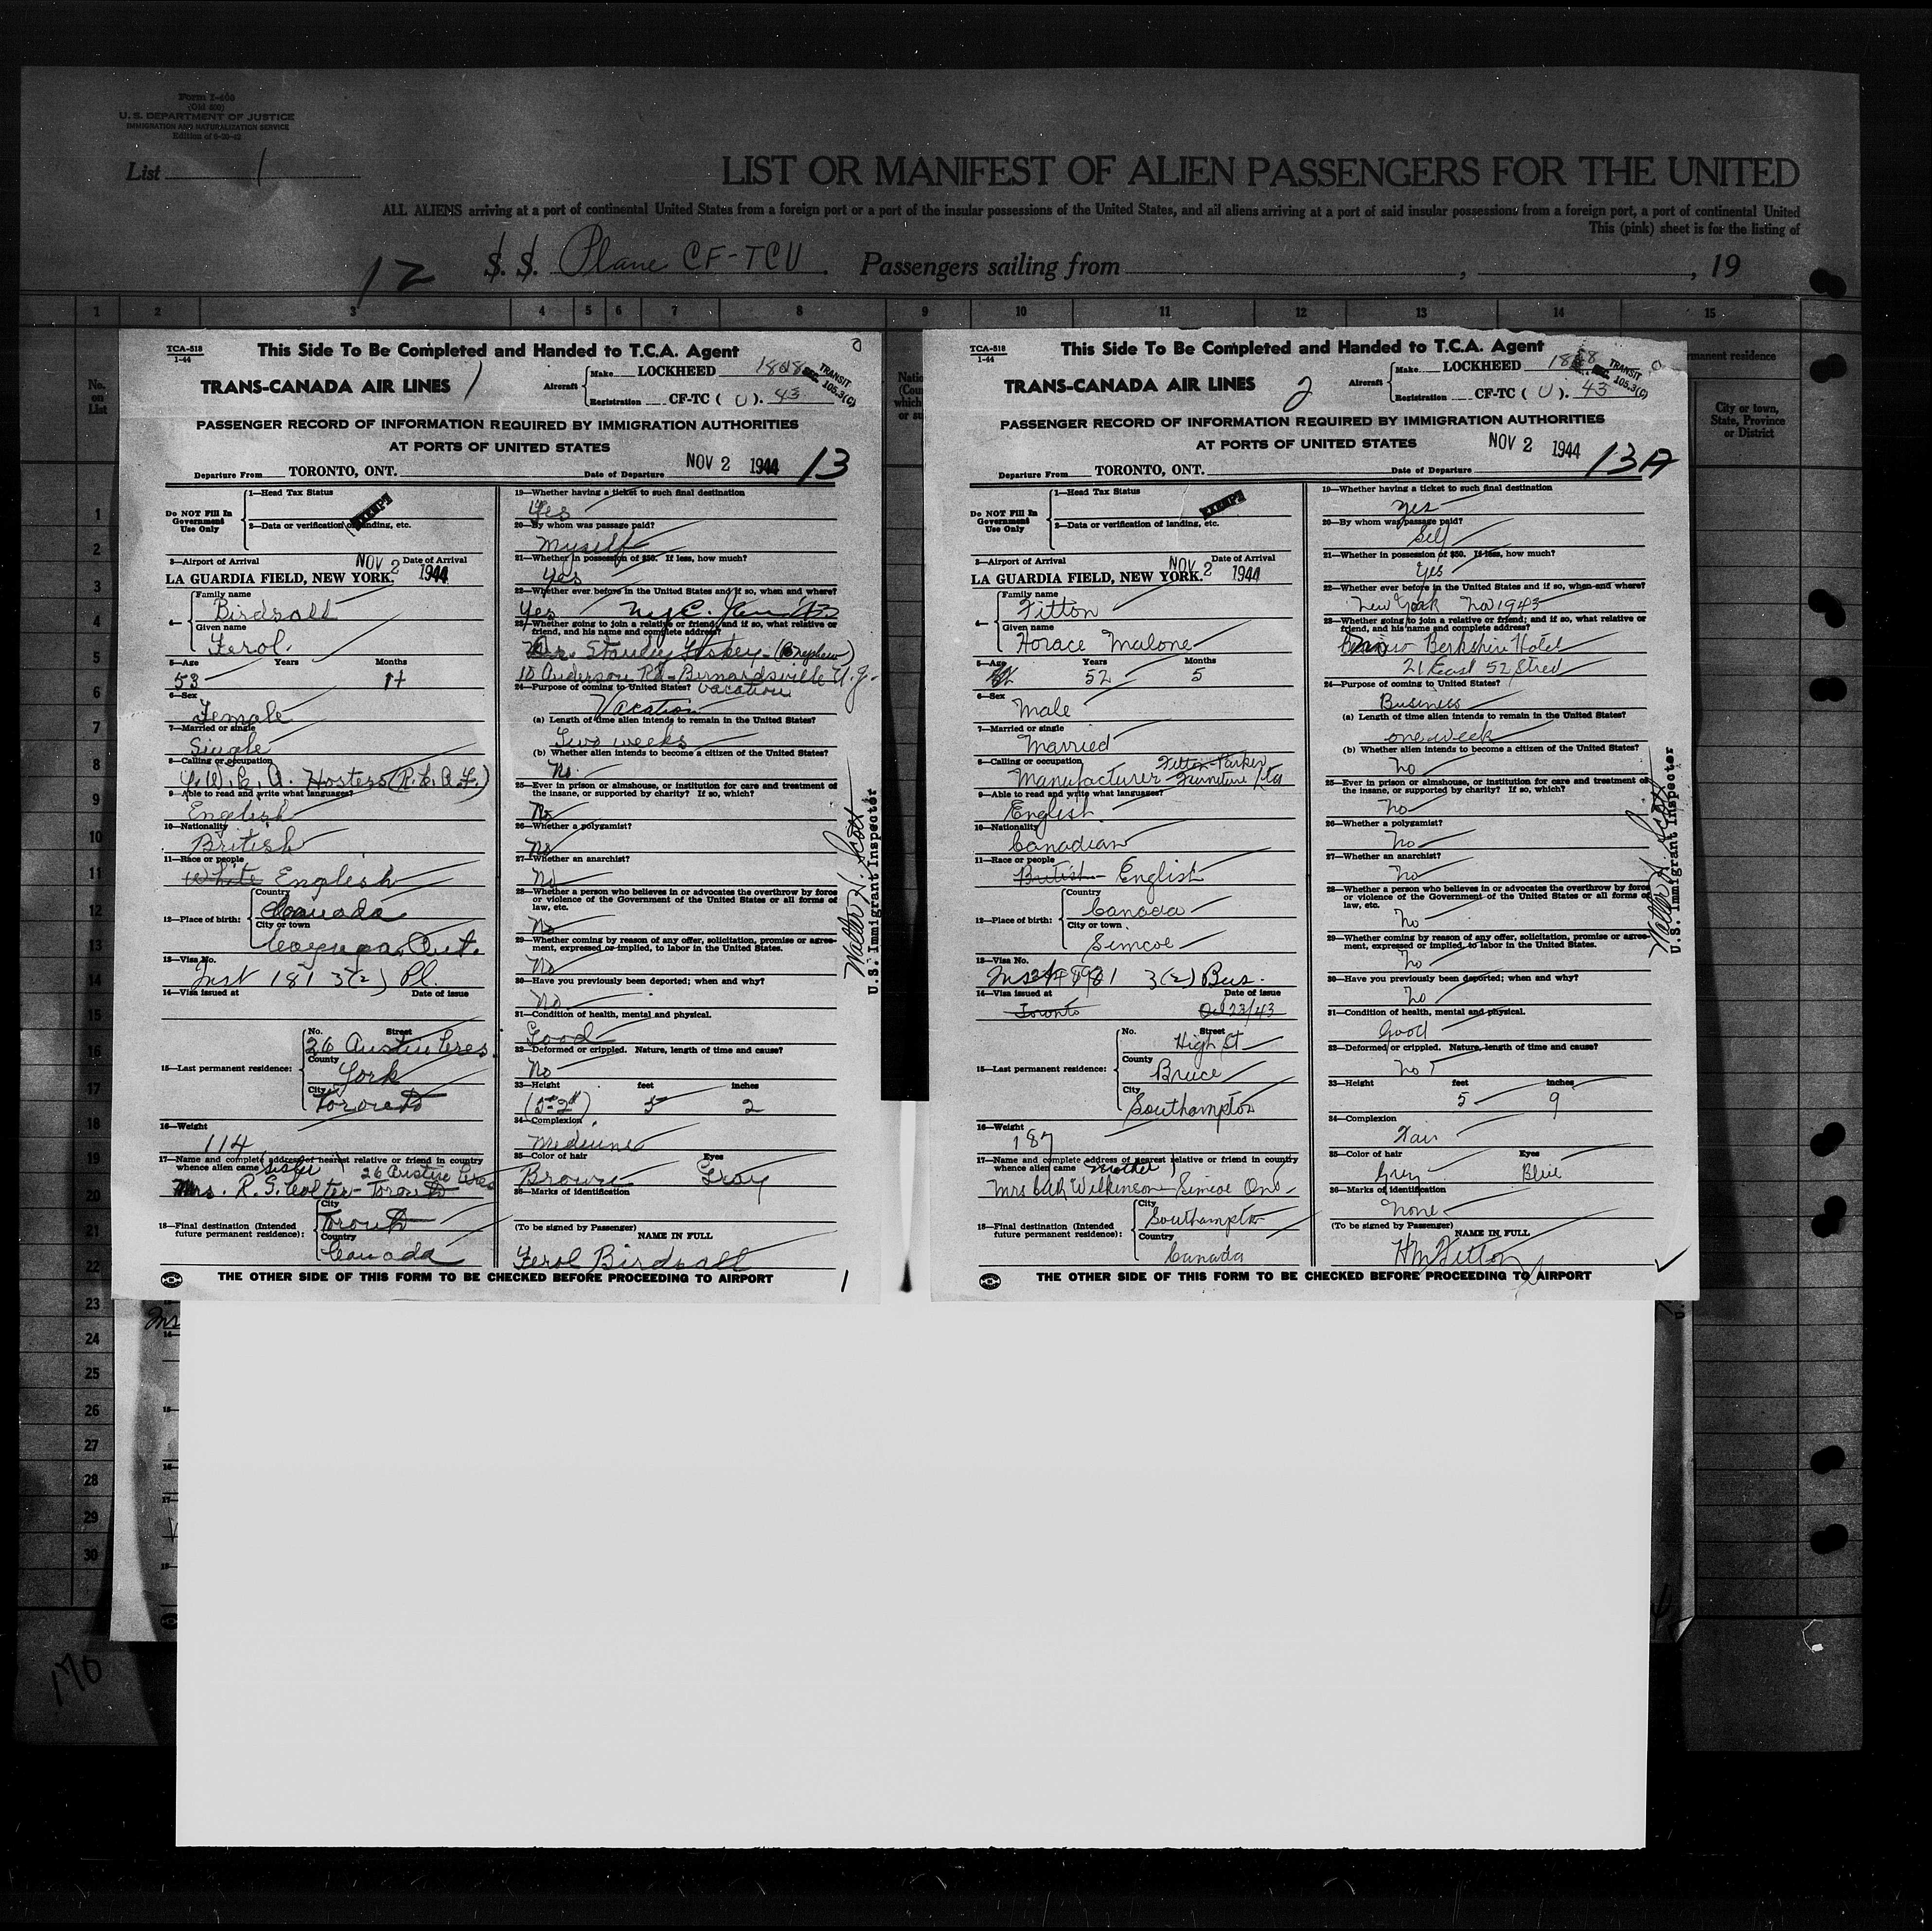 Form I-400
(Old 500)
U. S. DEPARTMENT OF JUSTICE
IMMIGRATION AND NATURALIZATION SERVICE
Edition of 5-20-42
List 1
LIST OR MANIFEST OF ALIEN PASSENGERS FOR THE UNITED
ALL ALIENS arriving at a port of continental United States from a foreign port or a port of the insular possessions of the United States, and all aliens arriving at a port of said insular possessions from a foreign port, a port of continental United
This (pink) sheet is for the listing of
12 S. S. Plane CF-TCU. Passengers sailing from , , 19
1 2 3 4 5 6 7 8 9 10 11 12 13 14 15
No.
on
List
TCA-518
1-44
This Side To Be Completed and Handed to T.C.A. Agent
TRANS-CANADA AIR LINES 1
Aircraft
Make LOCKHEED
Registration CF-TC ( U ). 43
TRANSIT
105.3(C)
PASSENGER RECORD OF INFORMATION REQUIRED BY IMMIGRATION AUTHORITIES
AT PORTS OF UNITED STATES
Departure From TORONTO, ONT. Date of Departure NOV 2 1944 13
Do NOT Fill In
Government
Use Only
1—Head Tax Status
EXEMPT
2—Data or verification of landing, etc.
3—Airport of Arrival NOV 2 1944 Date of Arrival
LA GUARDIA FIELD, NEW YORK.
4—
Family name
Birdsall
Given name
Ferol.
5—Age Years Months
53 11
6—Sex
Female
7—Married or single
Single
8—Calling or occupation
Y.W.C.A. Hostess (R.C.A.F.)
9—Able to read and write what languages?
English
10—Nationality
British
11—Race or people
White English
12—Place of birth:
Country
Canada
City or town
Cayuga, Ont.
13—Visa No.
Inst 181 3(2) Pl.
14—Visa issued at Date of issue
15—Last permanent residence:
No. Street
26 Austin Cres.
County
York
City
Toronto
16—Weight
114
17—Name and complete address of nearest relative or friend in country
whence alien came (sister) 26 Austin Cres
Mrs. R. G. Colter - Toronto
18—Final destination (Intended
future permanent residence):
City
Toronto
Country
Canada
19—Whether having a ticket to such final destination
Yes
20—By whom was passage paid?
Myself
21—Whether in possession of $50. If less, how much?
Yes
22—Whether ever before in the United States and if so, when and where?
Yes N.Y.C. Jan
23—Whether going to join a relative or friend; and if so, what relative or
friend, and his name and complete address?
Stanley (nephew)
10 Anderson Rd - Bernardsville N.J.
24—Purpose of coming to United States? Vacation
Vacation
(a) Length of time alien intends to remain in the United States?
Two weeks
(b) Whether alien intends to become a citizen of the United States?
No.
25—Ever in prison or almshouse, or institution for care and treatment of
the insane, or supported by charity? If so, which?
No
26—Whether a polygamist?
No
27—Whether an anarchist?
No
28—Whether a person who believes in or advocates the overthrow by force
or violence of the Government of the United States or all forms of
law, etc.
No
29—Whether coming by reason of any offer, solicitation, promise or agree-
ment, expressed or implied, to labor in the United States.
No
30—Have you previously been deported; when and why?
No
31—Condition of health, mental and physical.
Good
32—Deformed or crippled. Nature, length of time and cause?
No
33—Height feet inches
(5'-2") 5 2
34—Complexion
Medium
35—Color of hair Eyes
Brown Gray
36—Marks of identification
(To be signed by Passenger) NAME IN FULL
Ferol Birdsall
Walter H. Scott
U.S. Immigrant Inspector
THE OTHER SIDE OF THIS FORM TO BE CHECKED BEFORE PROCEEDING TO AIRPORT
1
TCA-518
1-44
This Side To Be Completed and Handed to T.C.A. Agent
TRANS-CANADA AIR LINES 2
Aircraft
Make LOCKHEED
Registration CF-TC ( U ). 43
TRANSIT
105.3(C)
PASSENGER RECORD OF INFORMATION REQUIRED BY IMMIGRATION AUTHORITIES
AT PORTS OF UNITED STATES
Departure From TORONTO, ONT. Date of Departure NOV 2 1944 13A
Do NOT Fill In
Government
Use Only
1—Head Tax Status
EXEMPT
2—Data or verification of landing, etc.
3—Airport of Arrival NOV 2 1944 Date of Arrival
LA GUARDIA FIELD, NEW YORK.
4—
Family name
Fitton
Given name
Horace Malone
5—Age Years Months
52 5
6—Sex
Male
7—Married or single
Married
8—Calling or occupation Fitton Parker
Manufacturer Furniture Ltd
9—Able to read and write what languages?
English
10—Nationality
Canadian
11—Race or people
British English
12—Place of birth:
Country
Canada
City or town
Simcoe
13—Visa No.
3(2) Bus.
14—Visa issued at Date of issue
Toronto Oct 23/43
15—Last permanent residence:
No. Street
High St
County
Bruce
City
Southampton
16—Weight
187
17—Name and complete address of nearest relative or friend in country
whence alien came (mother)
Mrs Wilkinson Simcoe Ont
18—Final destination (Intended
future permanent residence):
City
Southampton
Country
Canada
19—Whether having a ticket to such final destination
Yes
20—By whom was passage paid?
Self
21—Whether in possession of $50. If less, how much?
Yes
22—Whether ever before in the United States and if so, when and where?
New York Nov 1943
23—Whether going to join a relative or friend; and if so, what relative or
friend, and his name and complete address?
Berkshire Hotel
21 East 52 Street
24—Purpose of coming to United States?
Business
(a) Length of time alien intends to remain in the United States?
one week
(b) Whether alien intends to become a citizen of the United States?
No
25—Ever in prison or almshouse, or institution for care and treatment of
the insane, or supported by charity? If so, which?
No
26—Whether a polygamist?
No
27—Whether an anarchist?
No
28—Whether a person who believes in or advocates the overthrow by force
or violence of the Government of the United States or all forms of
law, etc.
No
29—Whether coming by reason of any offer, solicitation, promise or agree-
ment, expressed or implied, to labor in the United States.
No
30—Have you previously been deported; when and why?
No
31—Condition of health, mental and physical.
Good
32—Deformed or crippled. Nature, length of time and cause?
No
33—Height feet inches
5 9
34—Complexion
Fair
35—Color of hair Eyes
Grey Blue
36—Marks of identification
None
(To be signed by Passenger) NAME IN FULL
H M Fitton
Walter H. Scott
U.S. Immigrant Inspector
THE OTHER SIDE OF THIS FORM TO BE CHECKED BEFORE PROCEEDING TO AIRPORT
rmanent residence
City or town,
State, Province
or District
1
2
3
4
5
6
7
8
9
10
11
12
13
14
15
16
17
18
19
20
21
22
23
24
25
26
27
28
29
30
170